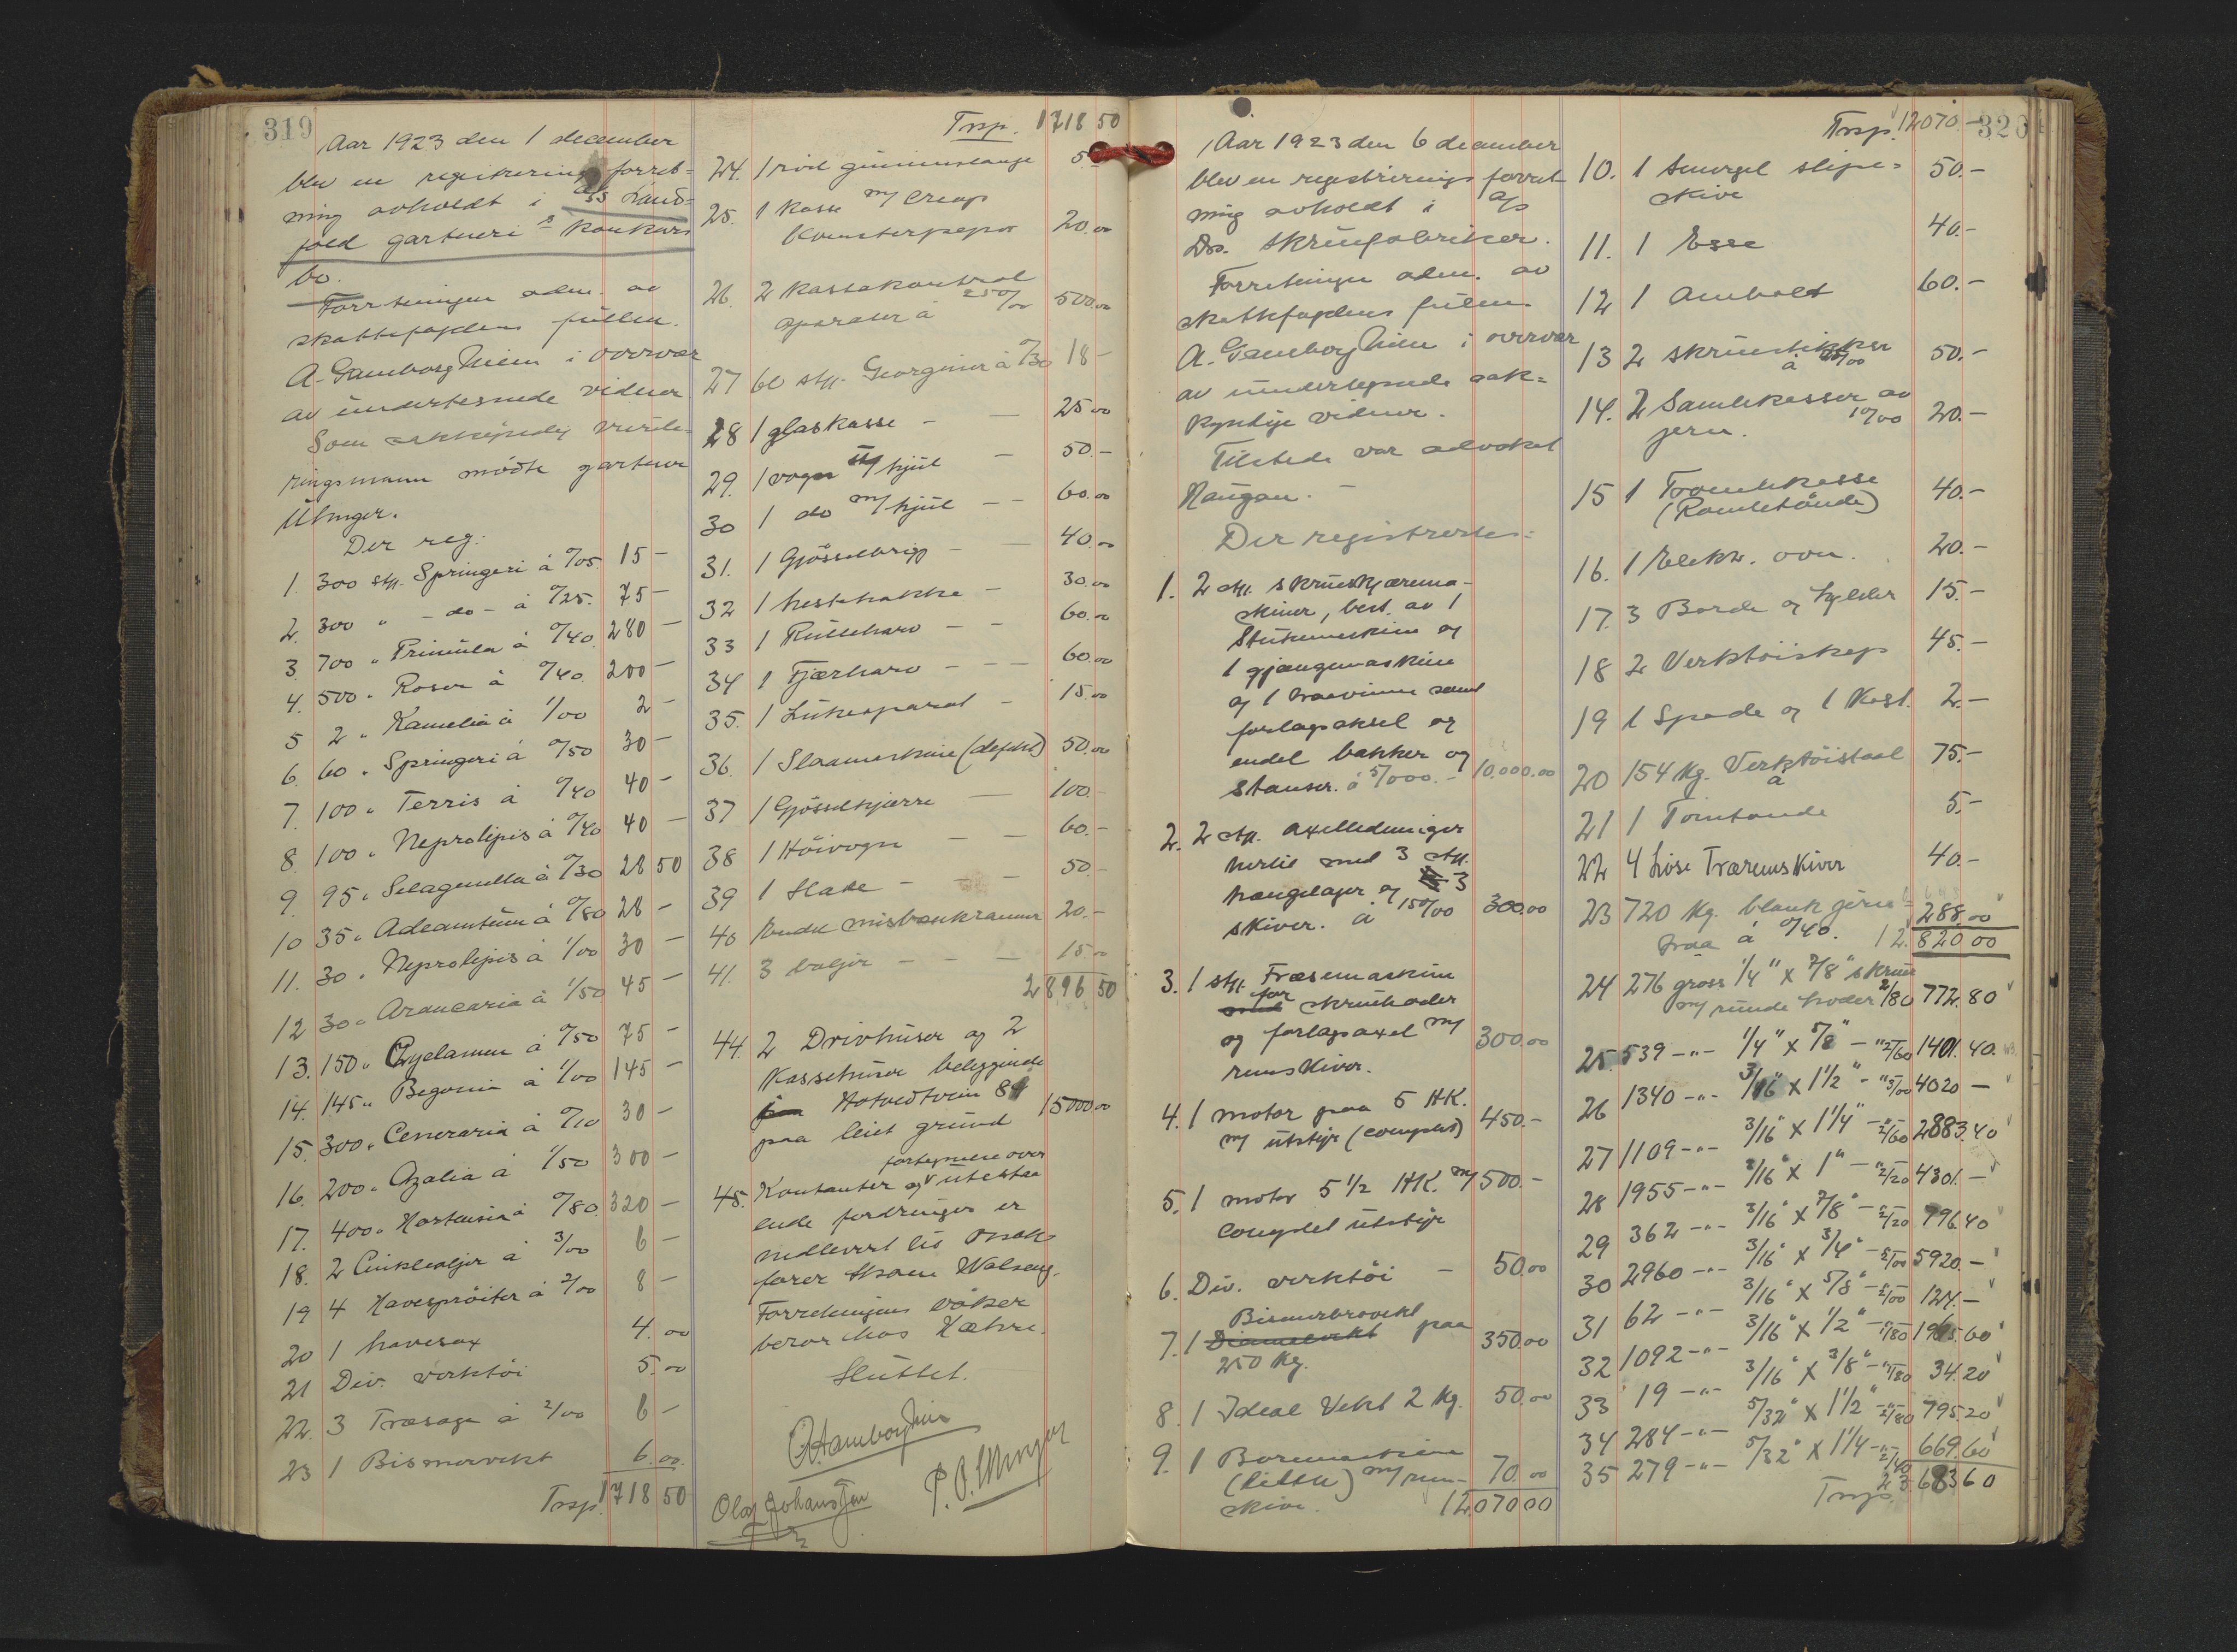 319
Aar 1923 den 1 december
blev en registrering forret-
ning avholdt i A/S Land-
fald gartneri's konkurs
bo.
Forretningen adm. av
skattefogdens fuldm.
A. Gamborg Nilsen i overvær
av undertegnede vidner
Som sakkyndig vurde-
ringsmann mødte gartner
Ulinger.
Der reg:
1. 300 stk. Springeri à 0/05. 15 -
2. 300 " - do - à 0/25. 75 -
3. 700 " Primula à 0/40. 280 -
4. 500 " Roser à 0/40. 200 -
5 2 " Kamelia à 1/00 2 -
6. 60 " Springeri à 0/50 30 -
7. 100 " Terris à 0/40 40 -
8. 100 " Neprolipis à 0/40 40 -
9. 95 " Selaginella à 0/30 28 50
10 35 " Adeamtum à 0/80 28 -
11. 30 " Neprolipis à 1/00 30 -
12 30 " Araucaria à 1/50 45 -
13. 150 " Cyclamen à 0/50 75 -
14. 145 " Begonia à 1/00 145 -
15. 300 " Ceneraria à 0/10 30 -
16. 200 " Azalia à 1/50 300 -
17. 400 " Hortensia à 0/80. 320 -
18. 2 Cinkbaljer à 3/00 6 -
19 4 Havesprøiter à 2/00 8 -
20 1 havesax 4.00
21 Div. verktøi 5.00
22. 3 Træsage à 2/00 6 -
23 1 Bismervekt 6.00.
Trsp. 1718 50
Trsp. 1718 50
24. 1 rød gummislange 5.-
25. 1 kasse m/ creap
blomsterpapir 20.00
26. 2 kassakontrol
aparater à 250/00 500.00
27 60 stk. Georginer à 0/30 18 -
28 1 glaskasse - - 25.00
29. 1 vogn u/ hjul - 50.-
30 1 do m/ hjul - - 60.00
31. 1 Gjødselbrigg - - 40.00
32 1 hestehakke - 30.00
33 1 Rulleharv - - 60.00
34 1 Fjærharv - - - 60.00
35. 1 Lukeaparat - 15.00
36. 1 Slaamaskine (defekt) 50.00
37 1 Gjødselkjærre - 100.-
38 1 Høivogn - - 60.-
39 1 Slæde - - - 50.-
40 1 endel misbænkrammer 20.-
41. 3 baljer - - - 15.00
2896 50
44. 2 Drivhuser og 2
Kassehuser beliggende
Hotvedtveien 81
paa leiet grund 15000.00
45. Kontanter og fortegnelse over uteståa
ende fordringer er
nedlevert til Orsak-
fører Thrane Walseng.
Forretningens bøker
beror hos Kæhre.
Sluttet.
A. Gamborg Nilsen
Olaf Johansen
P. O. Ulinger
Aar 1923 den 6 december
blev en registrerings forret
ning avholdt i A/S
Drs. Skruefabriker.
Forretningen adm. av
skattefogdens fuldm.
A. Gamborg Nilsen i overvær
av undertegnede sak=
kyndige vidner.
Tilstede var advokat
Haugan. -
Der registrertes:
1. 2 stk. skrueskjærema-
skiner, best. av 1
Stukemaskine og
1 gjængemaskine
og 1 traavinne samt
forlagsaksel og
endel bakker og
Stanser. à 5/000.- 10,000.00
2. 2 stk. axelledninger
hertil med 3 stk.
hængelager og 3
skiver. à 150/00 300.00
3. 1 stk. Fræsemaskine
med for skruehoder
og forlagsaxel m/
remskiver. 300.00
4. 1 motor paa 5 HK.
m/ utstyr (complet) 450.-
5. 1 motor 5 1/2 HK. m/ 500.-
complet utstyr
6. Div. verktøi - 50.00
Bismerbrovekt
7. 1 Decimalvekt paa
250 kg. 350.00
8. 1 Ideal Vekt 2 kg. 50.00
9. 1 Boremaskine
(liten) m/ rem- 70.00
skive. 12.070 00
Trsp. 12.070.- 320
10. 1 Smergel slipe=
skive 50.-
11. 1 Esse 40.-
12 1 Ambolt 60.-
13 2 skruestikker
à 25/00 50.-
14. 2 Samlekasser av
jern. 10/00 20.-
15 1 Tromlekasse
(Romletønde) 40.-
16. 1 Elektr. ovn. 20.-
17. 3 Borde og hylder 15.-
18 2 Verktøiskap 45.-
19 1 Spade og 1 Kost. 2.-
20 154 kg. Verktøistaal
à 75.-
21 1 Tomtønde 5.-
22 4 Løse Træremskiver 40.-
23 720 kg. blank jern-
traa à 0/40. 288.00
12.820 00
24 276 gross 1/4" x 7/8" skrue
m/ runde hoder 2/80 772.80
25. 539 -"- 1/4" x 5/8" - " 2/60 1401.40.
26 1340 -"- 3/16" x 1 1/2" - " 3/00 4020 -
27 1109 -"- 3/16" x 1 1/4" - " 2/60 2883.40
28 1955 -"- 3/16" x 1" - " 2/20 4301.-
29 362 -"- 3/16" x 7/8" - " 2/20 796.40
30 2960 -"- 3/16" x 3/4" - " 2/00 5920.-
31 62 -"- 3/16" x 5/8" - " 2/00 124.-
32 1092 -"- 3/16" x 1/2" - " 1/80 1965.60
33 19 -"- 3/16" x 3/8" - " 1/80 34.20
34 284 -"- 5/32" x 1 1/2" - " 2/80 795.20
35 279 -"- 5/32" x 1 1/4 - " 2/40 669.60
Trsp. 23.683 60